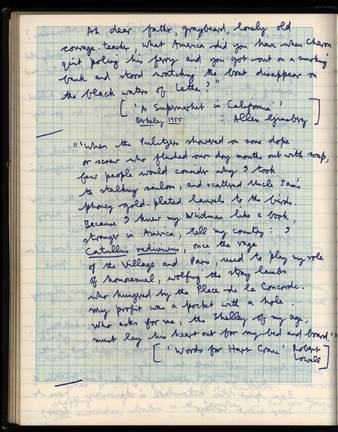 Ah dear father, graybeard, lonely old
courage-teacher, what America did you have when Charon
quit poling his ferry and you got out on a smoking
bank and stood watching the boat disappear on
the black waters of Lethe?"
['A Supermarket in California'
Berkeley 1955 : Allen Ginsberg]
"'When the Pulitzers showered on some dope
or screw who flushed our dry mouths out with soap,
few people would consider why I took
to stalking sailors, and scattered Uncle Sam's
phoney gold-plated laurels to the birds.
Because I knew my Whitman like a book,
stranger in America, tell my country: I
Catullus redivivus, once the rage
of the Village and Paris, used to play my role
of homosexual, wolfing the stray lambs
who hungred by the Place de la Concorde.
My profit was a pocket with a hole.
Who asks for me, the Shelley of my age,
must lay his heart out for my bed and board'"
['Words for Hart Crane' Robert
Lowell]